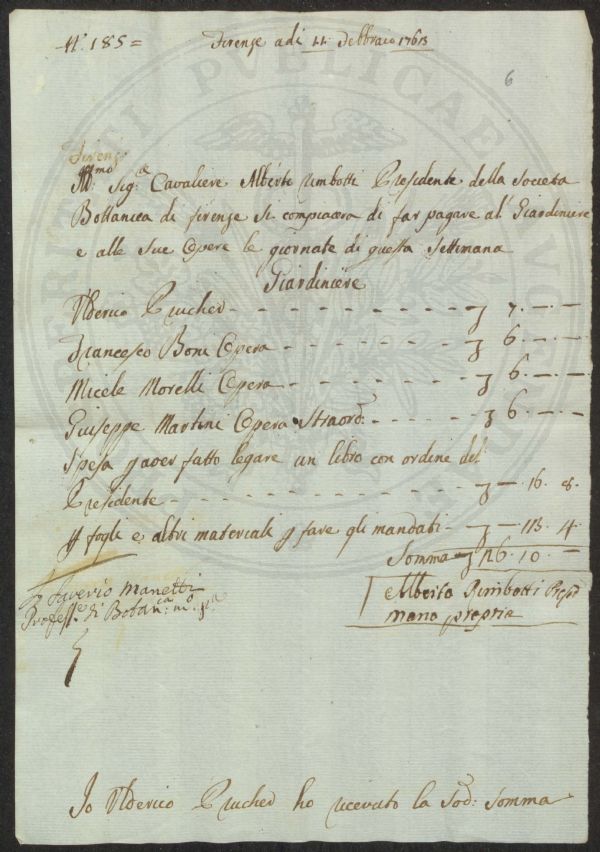 N.° 185 =
Firenze adi 11 Febbraio 1763
6
Firenz
Ill:mo Sig:re Cavaliere Alberto Rimbotti Presidente della Societa
Bottanica di firenze Si compiacera di far pagare al Giardiniere
e alle Sue Opere le giornate di questa Settimana
Giardiniere
Ulderico Prucher - - - - - - - - - - 7. — . —
Francesco Boni Opera - - - - - - - 6. — . —
Micele Morelli Opera - - - - - - - 6. — . —
Guiseppe Martini Opera Straord: - - - - 6. — . —
Spesa p aver fatto legare un libro con ordine del
Presidente - - - - - - - - - - — . 16. 8.
p fogli e altri materiali p fare gli mandati - — . 13. 4.
Somma 26. 10. —
Saverio Manetti
Profess.e di Botan:ca m:o p:a
Alberto Rimbotti Presid
mano propria
Io Ulderico Prucher ho ricevuto la Sod: Somma
PUBLICAE